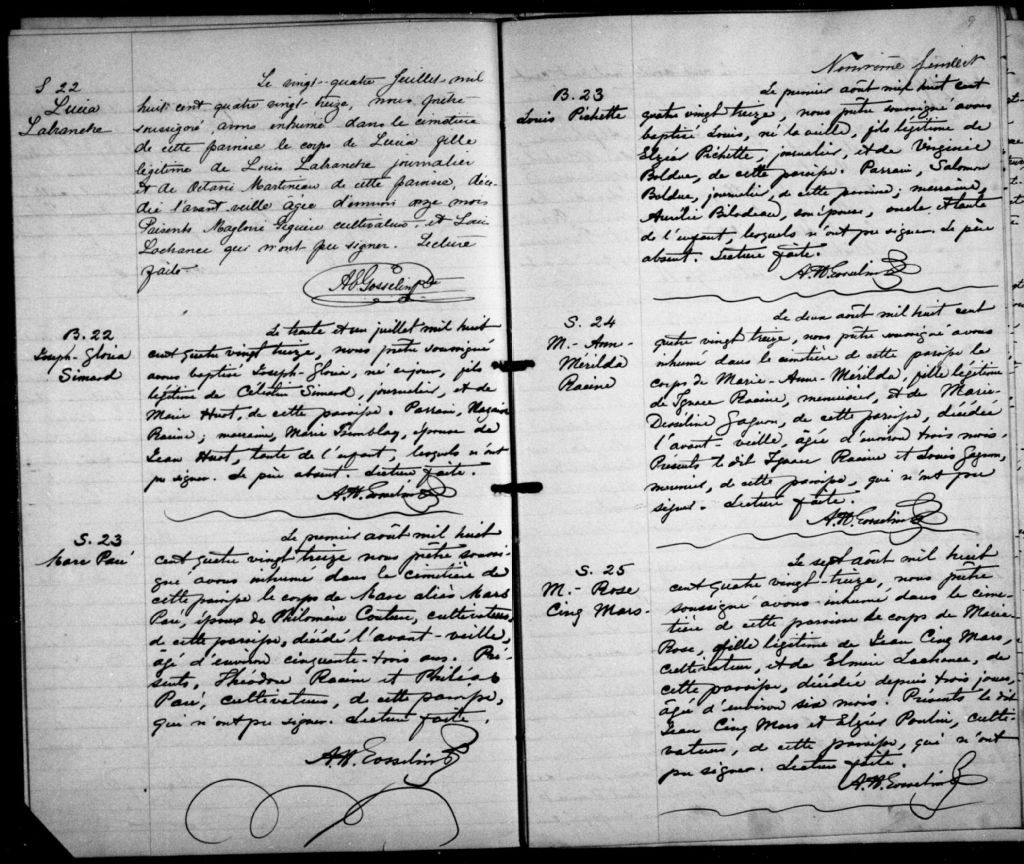 S 22
Lucia
Lafranchre
Le vingt-quatre Juillet mil
huit cent quatre vingt treize, nous prêtre
soussigné avons inhumé dans le cimetière
de cette paroisse le corps de Lucia fille
légitime de Louis Lafranchre journalier
et de Octavie Martineau de cette paroisse, décé-
dée l'avant veille agée d'environ onze mois
Présents Magloire cultivateur, et Louis
Lachance qui n'ont pu signer. Lecture
faite
A.E. Gosselin ptre
B. 22
Joseph-Gloria
Simard
Le trente et un juillet mil huit
cent quatre vingt treize, nous prêtre soussigné
avons baptisé Joseph-Gloria, né ce jour, fils
légitime de Célestin Simard, journalier, et de
Marie Huot de cette paroisse. Parrain, Nazaire
Racine; marraine, Marie Tremblay, épouse de
Jean Huot, tante de l'enfant, lesquels n'ont
pu signer. Le père absent. Lecture faite.
A.H. Gosselin
S. 23
Marc Paré
Le premier août mil huit
cent quatre vingt treize nous prêtre soussi-
gné avons inhumé dans le cimetière de
cette paroisse le corps de Marc alias Mars
Paré, époux de Philomène Couture, cultivateur,
de cette paroisse, décédé l'avant-veille,
âgé d'environ cinquante-trois ans. Pré-
sents, Théodore Racine et Philéas
Paré, cultivateurs, de cette paroisse,
qui n'ont pu signer. Lecture faite.
A.H. Gosselin
9
Neuvième feuillet
B. 23
Louis Pichette
Le premier août mil huit cent
quatre vingt treize, nous prêtre soussigné avons
baptisé Louis, né la veille, fils légitime de
Elzéar Pichette, journalier, et de Virginie
Bolduc, de cette paroisse. Parrain, Salomon
Bolduc, journalier, de cette paroisse; marraine,
Aurélie Bilodeau, son épouse, oncle et tante
de l'enfant, lesquels n'ont pu signer. Le père
absent. Lecture faite.
A.H. Gosselin
S. 24
M.-Ann-
Mérilda
Racine
Le deux août mil huit cent
quatre vingt treize, nous prêtre soussigné avons
inhumé dans le cimetière de cette paroisse le
corps de Marie-Anne-Mérilda, fille légitime
de Ignace Racine, menuisier, et de Marie-
Desoline Gagnon, de cette paroisse, décédée
l'avant-veille, âgée d'environ trois mois.
Présents le dit Ignace Racine et Louis Gagnon,
meunier, de cette paroisse, qui n'ont pu
signer. Lecture faite.
A.H. Gosselin
S. 25
M.-Rose
Cinq Mars-
Le sept août mil huit
cent quatre vingt-treize, nous prêtre
soussigné avons inhumé dans le cime-
tière de cette paroisse le corps de Marie
Rose, fille légitime de Jean Cinq Mars,
cultivateur, et de Elmire Lachance, de
cette paroisse, décédée depuis trois jours,
âgée d'environ six mois. Présents le dit
Jean Cinq Mars et Elzéar Poulin, culti-
vateurs, de cette paroisse, qui n'ont
pu signer. Lecture faite.
A.H. Gosselin